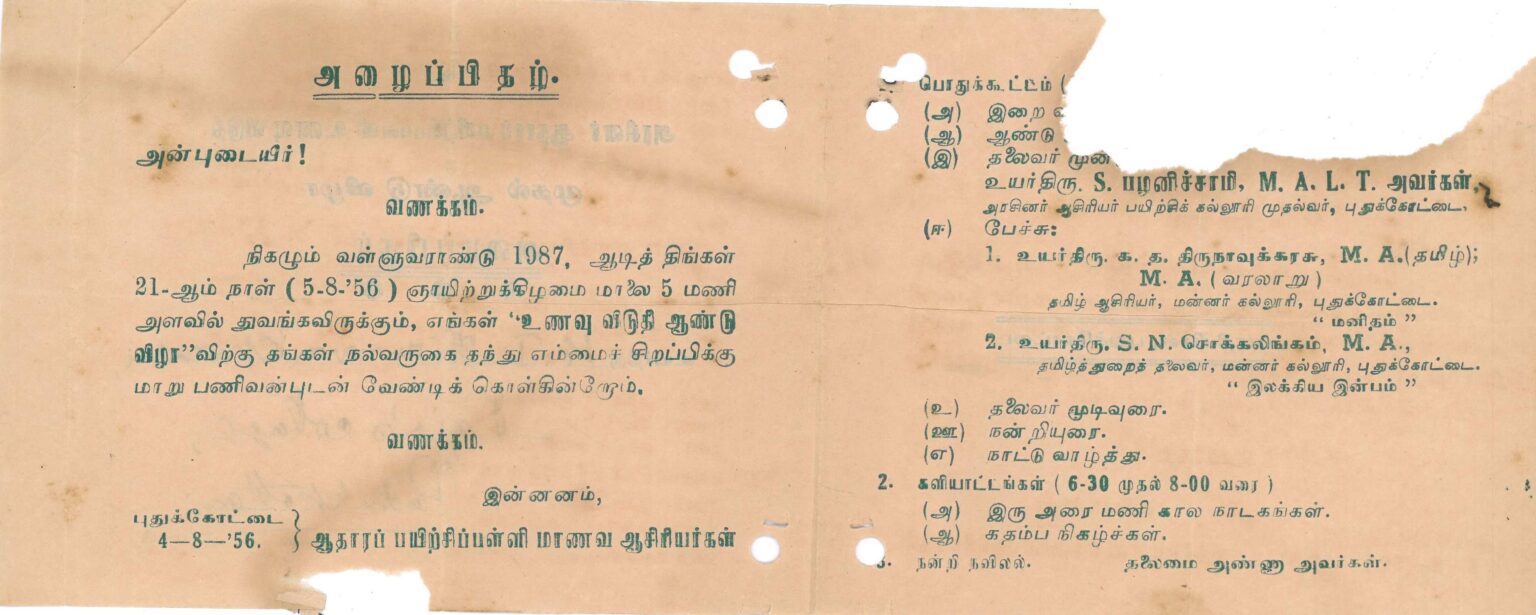 அழைப்பிதழ்.
அன்புடையிர்!
வணக்கம்.
நிகழும் வள்ளுவராண்டு 1987, ஆடித் திங்கள்
21-ஆம் நாள் ( 5-8-'56 ) ஞாயிற்றுக்கிழமை மாலை 5 மணி
அளவில் துவங்கவிருக்கும், எங்கள் “உணவு விடுதி ஆண்டு
விழா”விற்கு தங்கள் நல்வருகை தந்து எம்மைச் சிறப்பிக்கு
மாறு பணிவன்புடன் வேண்டிக் கொள்கின்றோம்.
வணக்கம்.
இன்னனம்,
புதுக்கோட்டை
4—8—'56.
ஆதாரப் பயிற்சிப்பள்ளி மாணவ ஆசிரியர்கள்
பொதுக்கூட்டம் (
(அ) இறை
(ஆ) ஆண்டு
(இ) தலைவர் முன்
உயர்திரு. S. பழனிச்சாமி, M. A. L. T. அவர்கள்,
அரசினர் ஆசிரியர் பயிற்சிக் கல்லூரி முதல்வர், புதுக்கோட்டை.
(ஈ) பேச்சு:
1. உயர்திரு. க. த. திருநாவுக்கரசு, M. A.(தமிழ்);
M. A. ( வரலாறு )
தமிழ் ஆசிரியர், மன்னர் கல்லூரி, புதுக்கோட்டை.
“ மனிதம் ”
2. உயர்திரு. S. N. சொக்கலிங்கம், M. A.,
தமிழ்த்துறைத் தலைவர், மன்னர் கல்லூரி, புதுக்கோட்டை.
“ இலக்கிய இன்பம் ”
(உ) தலைவர் முடிவுரை.
(ஊ) நன்றியுரை.
(எ) நாட்டு வாழ்த்து.
2. களியாட்டங்கள் ( 6-30 முதல் 8-00 வரை )
(அ) இரு அரை மணி கால நாடகங்கள்.
(ஆ) கதம்ப நிகழ்ச்கள்.
நன்றி நவிலல். தலைமை அண்ணா அவர்கள்.